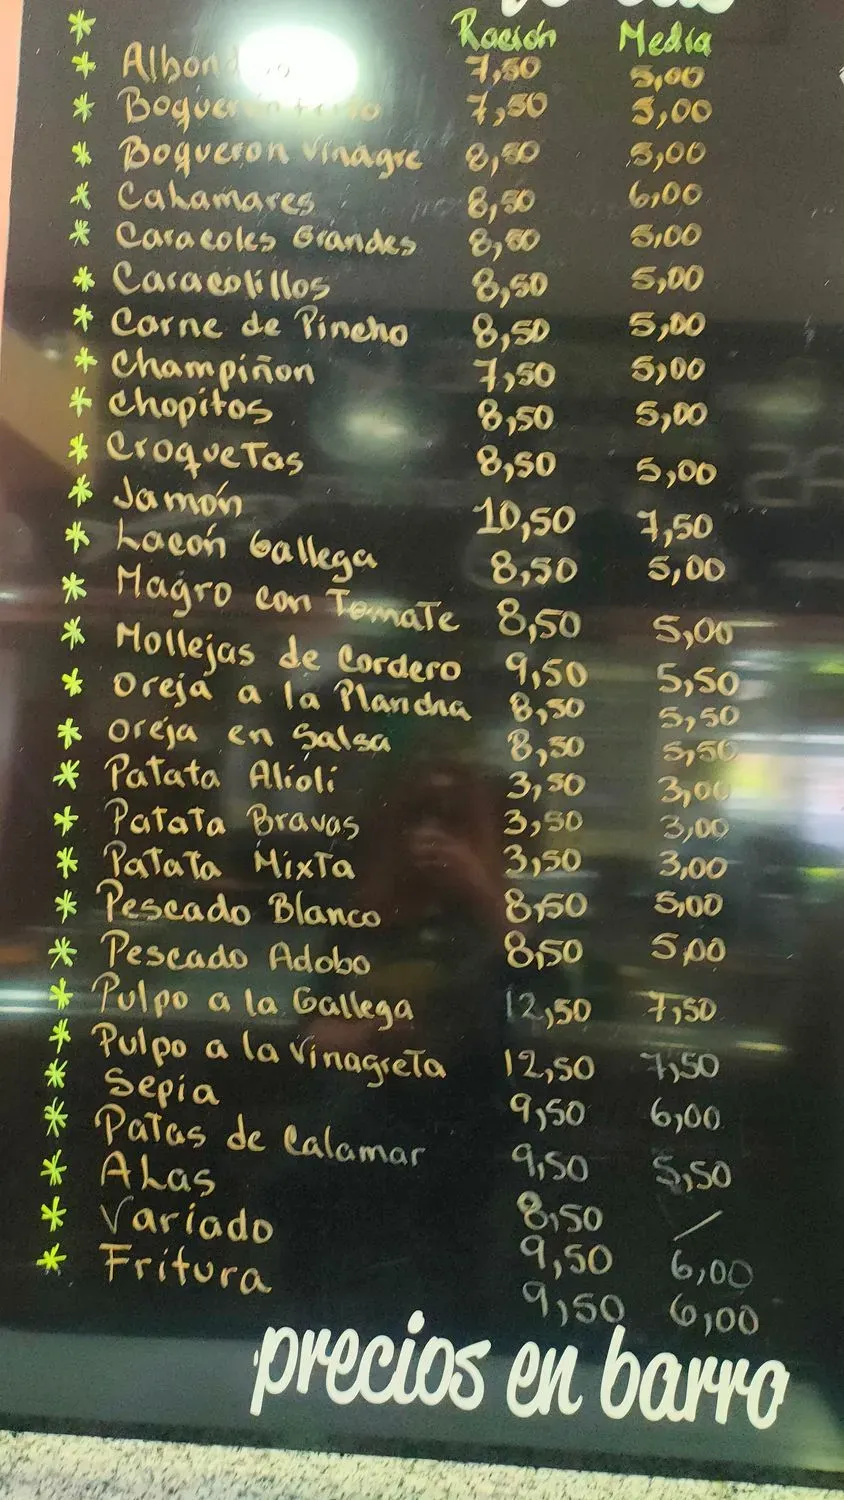 Ración Media
* Albon 7,50 5,00
* Boquerón Frito 7,50 5,00
* Boqueron Vinagre 8,50 5,00
* Calamares 8,50 6,00
* Caracoles Grandes 8,50 5,00
* Caracolillos 8,50 5,00
* Carne de Pincho 8,50 5,00
* Champiñon 7,50 5,00
* Chopitos 8,50 5,00
* Croquetas 8,50 5,00
* Jamón 10,50 7,50
* Lacón Gallega 8,50 5,00
* Magro con Tomate 8,50 5,00
* Mollejas de Cordero 9,50 5,50
* Oreja a la Plancha 8,50 5,50
* Oreja en Salsa 8,50 5,50
* Patata Alioli 3,50 3,00
* Patata Bravas 3,50 3,00
* Patata Mixta 3,50 3,00
* Pescado Blanco 8,50 5,00
* Pescado Adobo 8,50 5,00
* Pulpo a la Gallega 12,50 7,50
* Pulpo a la Vinagreta 12,50 7,50
* Sepia 9,50 6,00
* Patas de Calamar 9,50 5,50
* Alas 8,50 /
* Variado 9,50 6,00
* Fritura 9,50 6,00
precios en barro